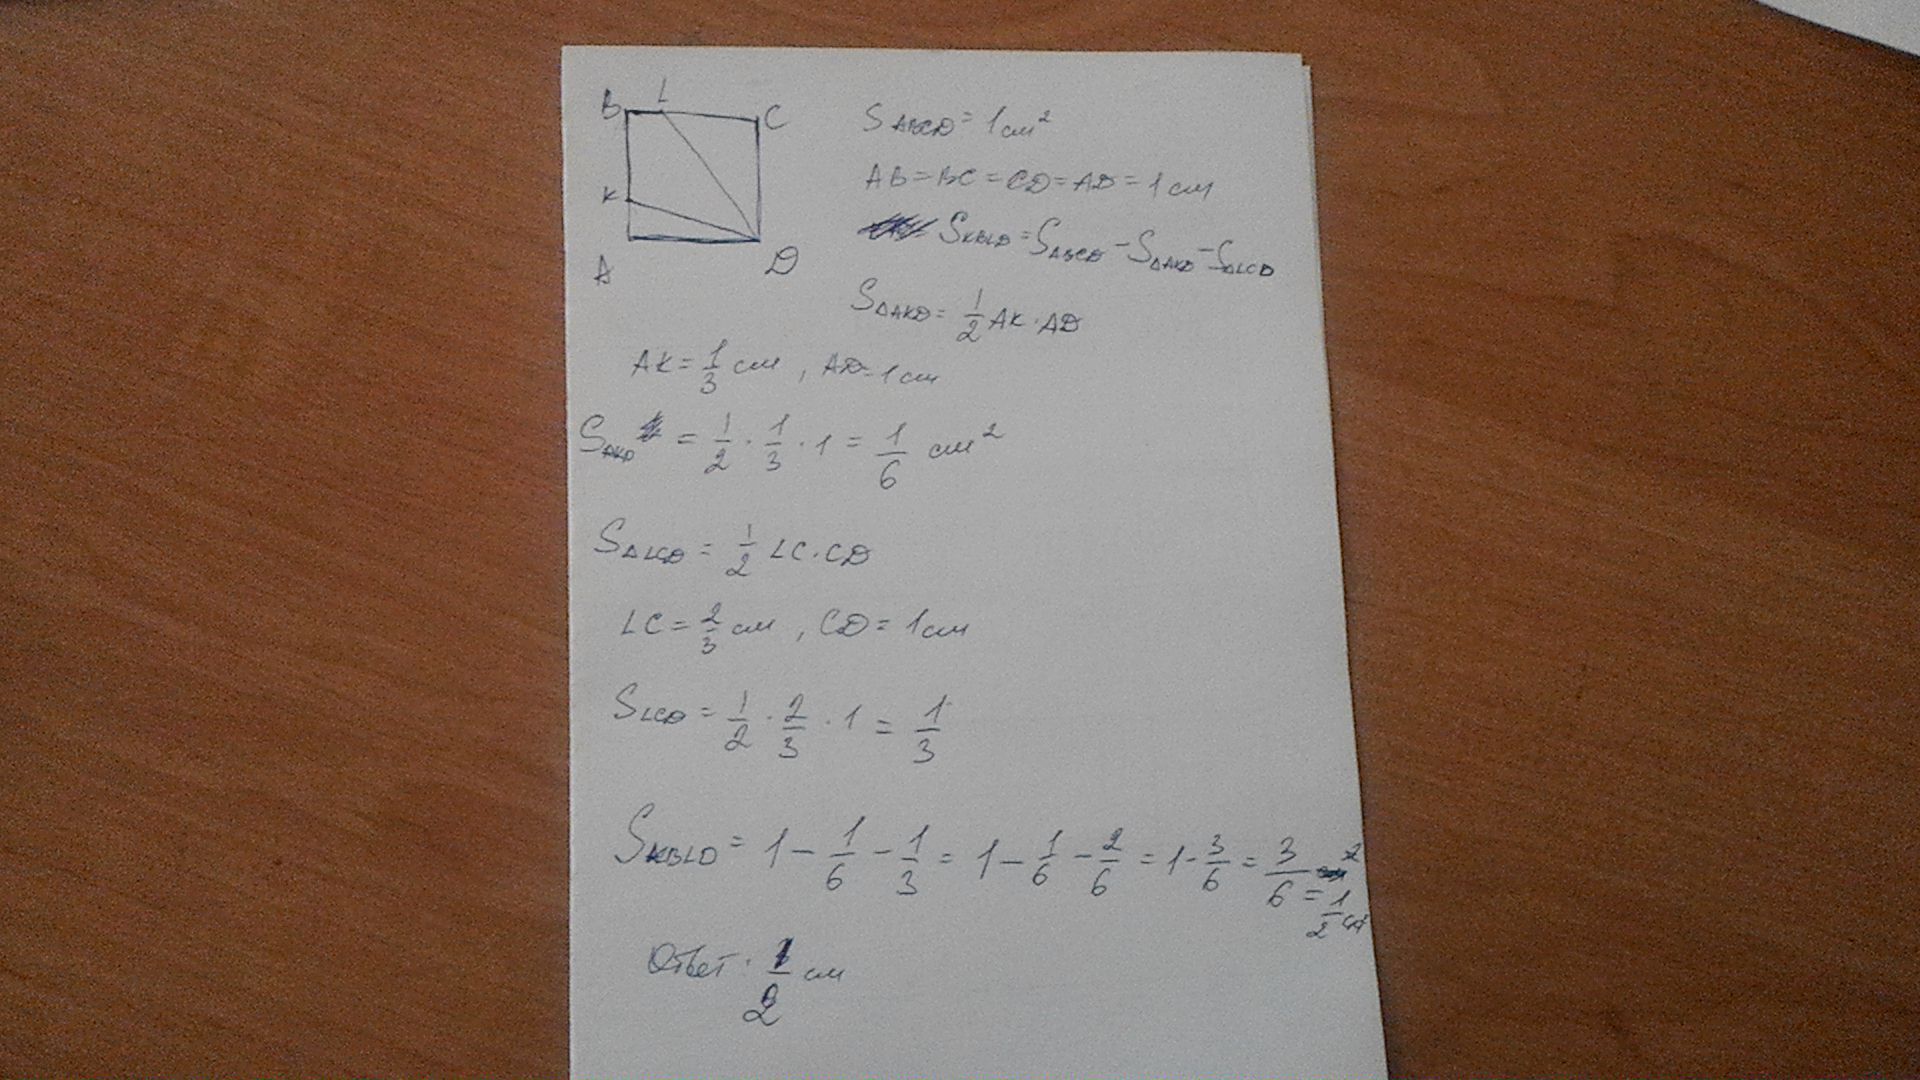 B L C
K
A D
S ABCD = 1 см²
AB = BC = CD = AD = 1 см
S KBLD = S ABCD - S ΔAKD - S ΔLCD
S ΔAKD = 1/2 AK · AD
AK = 1/3 см , AD = 1 см
S AKD = 1/2 · 1/3 · 1 = 1/6 см²
S ΔLCD = 1/2 LC · CD
LC = 2/3 см , CD = 1 см
S LCD = 1/2 · 2/3 · 1 = 1/3
S KBLD = 1 - 1/6 - 1/3 = 1 - 1/6 - 2/6 = 1 - 3/6 = 3/6 = 1/2 см²
Ответ: 1/2 см